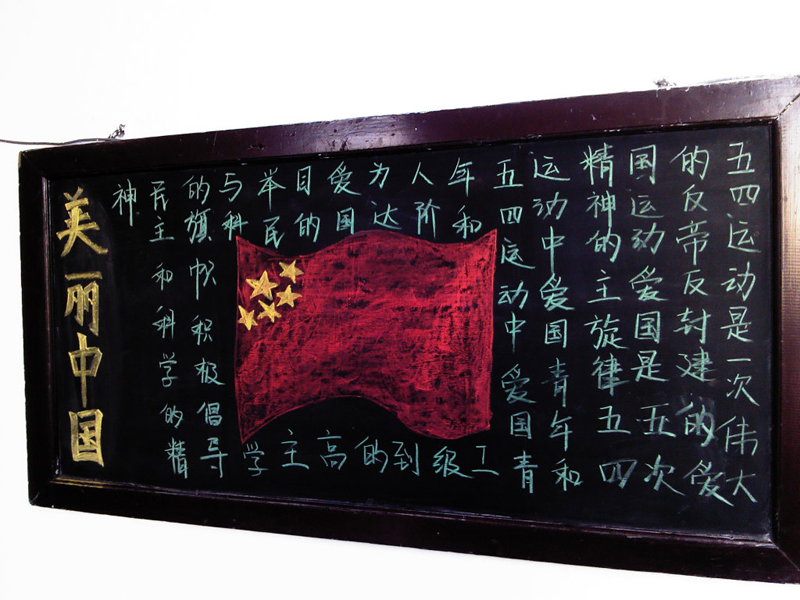 五四运动是一次伟大
的反帝反封建的爱
国运动爱国是五次
精神的主旋律五四
运动中爱国青年和
五四运动中爱国青
年和工
人阶级
为达到
爱国的
目的高
举民主
与科学
的旗帜积极倡导
民主和科学的精
神
美丽中国